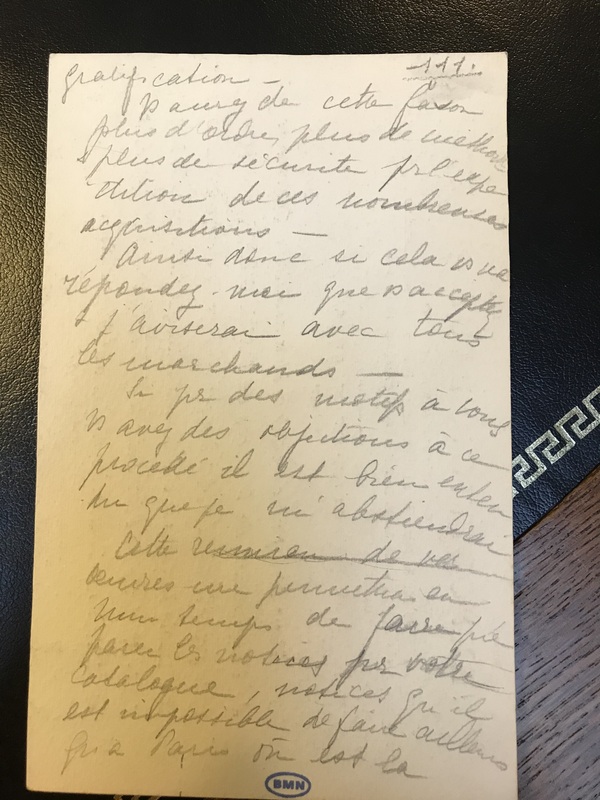 111.
gratification —
Vs aurez de cette façon
plus d'ordre, plus de méthode
& plus de sécurité pr l'expé
dition de ces nombreuses
acquisitions —
Ainsi donc si cela vs va
répondez-moi que vs acceptez
& j'aviserai avec tous
les marchands —
Si pr des motifs à vous
vs avez des objections à ce
procédé il est bien enten
du que je m'abstiendrai
Cette réunion de vos
œuvres me permettra en
même temps de faire pré
parer les notices pr votre
catalogue, notices qu'il
est impossible de faire ailleurs
qu'a Paris où est la
BMN